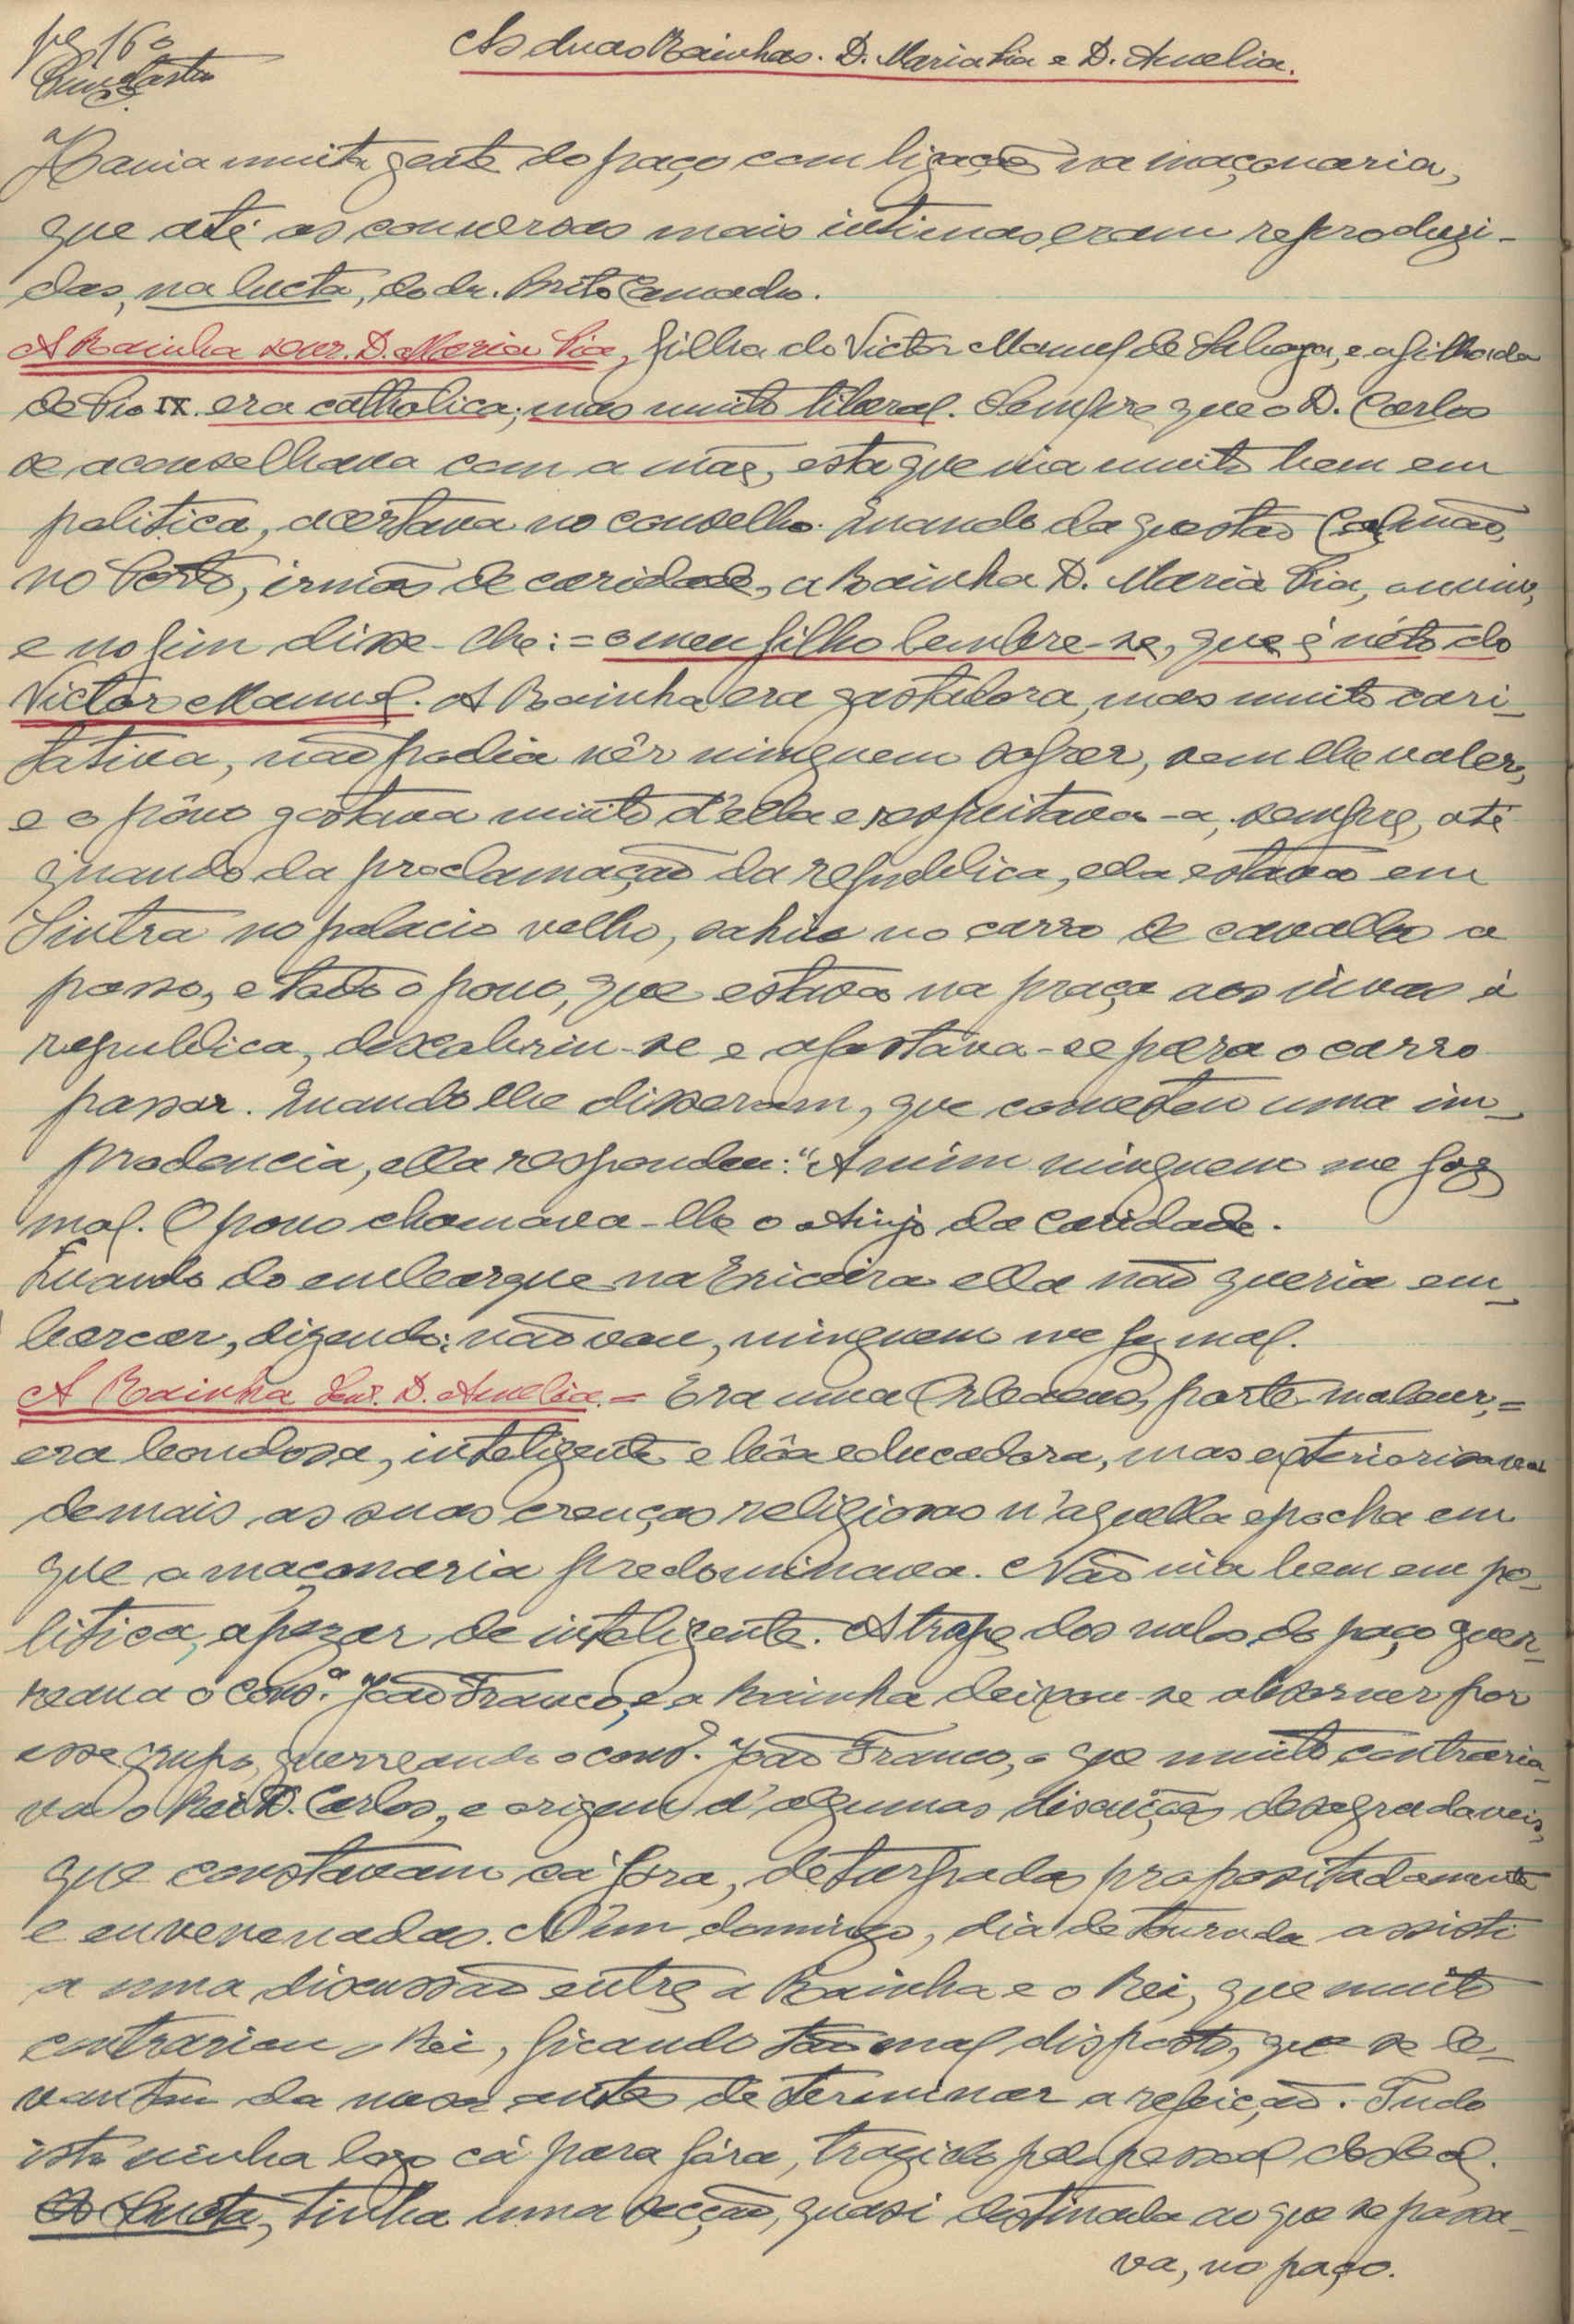 pg 16º
As duas Rainhas. D. Maria Pia e D. Amelia.
Havia muita gente do paço com ligação na maçonaria,
que até as conversas mais intimas eram reproduzi-
das, na lucta, do dr. Brito Camacho.
A Rainha senr. D. Maria Pia, filha do Victor Manuel de Saboya, e afilhada
de Pio IX. era catholica; mas muito liberal. Sempre que o D. Carlos
se aconselhava com a mãe, esta que via muito bem em
politica, acertava no conselho. Quando da questão Calmão,
no Porto, irmãs de caridade, a Rainha D. Maria Pia, ouviu,
e no fim disse-lhe: = o meu filho lembre-se, que é néto do
Victor Manuel. A Rainha era gastadora, mas muito cari-
tativa, não podia vêr ninguem sofrer, sem lhe valer,
e o pôvo gostava muito d'ella e respeitava-a, sempre, até
quando da proclamação da republica, ella estava em
Sintra no palacio velho, sahiu no carro de cavallos a
passo, e todo o povo, que estava na praça aos vivas á
republica, descobriu-se e afastava-se para o carro
passar. Quando lhe disseram, que cometeu uma im-
prudencia, ella respondeu: "A mim ninguem me faz
mal. O povo chamava-lhe o Anjo da Caridade.
Quando do embarque na Ericeira ella não queria em-
barcar, dizendo: não vou, ninguem me faz mal.
A Rainha Senr. D. Amelia. = Era uma Orleaens, porte-maleur, =
era bondosa, inteligente e bôa educadora, mas exteriorisava
demais as suas crenças religiosas n'aquella epocha em
que a maçonaria predominava. Não via bem em po-
litica, apezar de inteligente. A trope dos nulos do paço guer-
reava o consº. João Franco, e a Rainha deixou-se absorver por
esse grupo, guerreando o consº. João Franco, o que muito contraria-
va o Rei D. Carlos, e origem d'algumas discuções desagradaveis,
que constavam cá fora, deturpadas propositadamente
e envenenadas. N'um domingo, dia de tourada assisti
a uma discussão entre a Rainha e o Rei, que muito
contrariou o Rei, ficando tão mal disposto, que se le-
vantou da mesa antes de terminar a refeição. Tudo
isto vinha logo cá para fóra, trazido pelo pessoal desleal.
A Lucta, tinha uma secção, quasi destinada ao que se passa-
va, no paço.